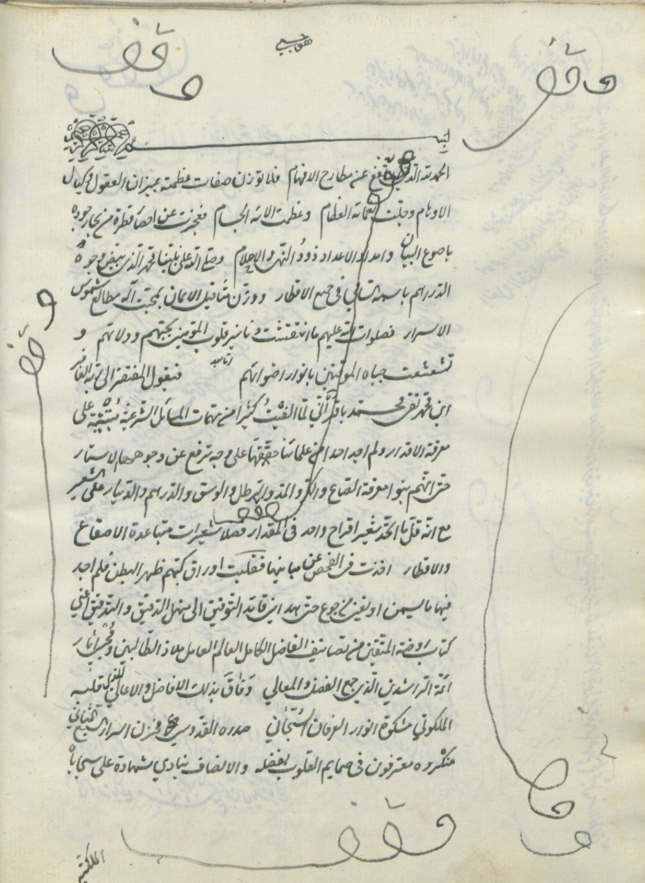 وقف
وقف
الحمد لله الذي ترفع عن مطارح الافهام فلا توزن صفات عظمته بميزان العقول ومكيال
الاوهام وجلت نعمائه العظام وعظمت الائه الجسام فعجزت عن احصاء قطرة من بحار جوده
باصوع البيان وامداد الاعداد ذوو النهى والاحلام وصلى الله على نبينا محمد الذي
الدراهم باسمه في جميع الاقطار ووزن مثاقيل الايمان بمحبة آله مطالع شموس
الاسرار فصلوات الله عليهم ما انتقشت دنانير قلوب المؤمنين بحبهم وولائهم و
تشعشعت جباه الموقنين بانوار اضوائهم اما بعد فيقول المفتقر الى ربه الغافر
ابن محمد تقي محمد باقر اني لما الفيت كثيرا من مهمات المسائل الشرعية مبتنية على
معرفة الاقدار ولم اجد احدا من علمائنا حققها على وجه ترفع عن وجوهها الاستار
حتى انهم بنوا معرفة الصاع والكر والمد والرطل والوسق والدرهم والدينار على الشعير
مع انه قل ما اتحد شعير اقراح واحد في المقدار فضلا شعيرات متباعدة الاصقاع
والاقطار اخذت في الفحص عن مبانيها فقلبت اوراق كتبهم ظهرا لبطن فلم اجد
فيها ما يسمن او يغني من جوع حتى هداني قائد التوفيق الى منهل التدقيق والتحقيق اعني
كتاب روضة المتقين من تصانيف الفاضل الكامل العالم العامل ملاذ الطالبين ومحيي آثار
ائمة الراشدين الذي جمع الفضل والمعالي وفاق بذلك الافاضل والاعالي قلبه
الملكوتي مشكوة انوار العرفان السبحاني صدره القدوسي مخزن اسرار
منكروه معترفون في صمايم القلوب بفضله والانصاف ينادي شهادة على سجاياه
وقف
وقف
الملكية